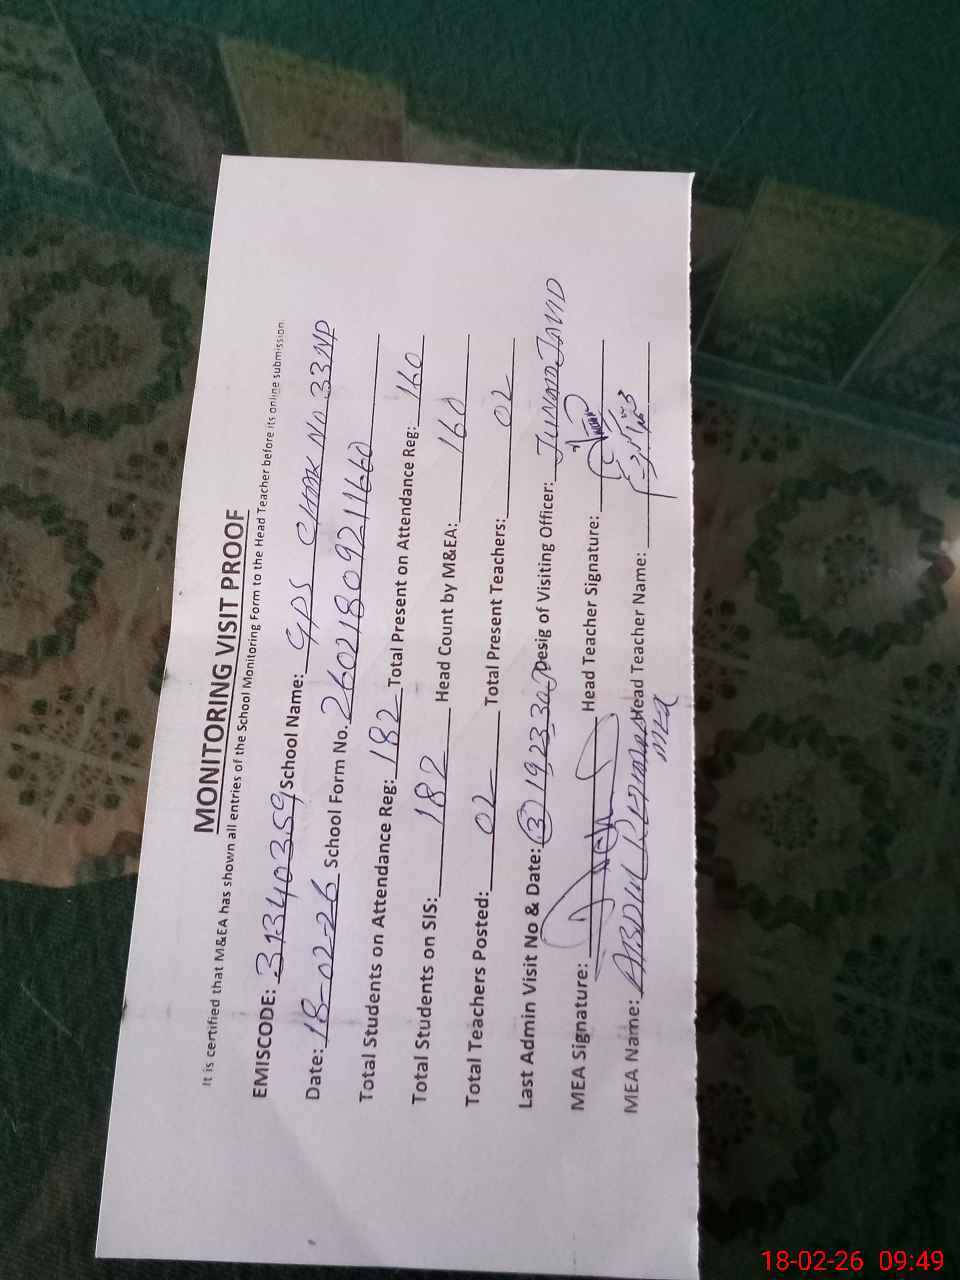 MONITORING VISIT PROOF
It is certified that M&EA has shown all entries of the School Monitoring Form to the Head Teacher before its online submission.
EMISCODE: 31340359 School Name: GPS CHAK No 33 NP
Date: 18-02-26 School Form No. 26021809211660
Total Students on Attendance Reg: 182 Total Present on Attendance Reg: 160
Total Students on SIS: 182 Head Count by M&EA: 160
Total Teachers Posted: 02 Total Present Teachers: 02
Last Admin Visit No & Date: (3) Desig of Visiting Officer: JUNAID JAVID
MEA Signature: Head Teacher Signature:
MEA Name: ABDUL Head Teacher Name:
MEA
18-02-26 09:49